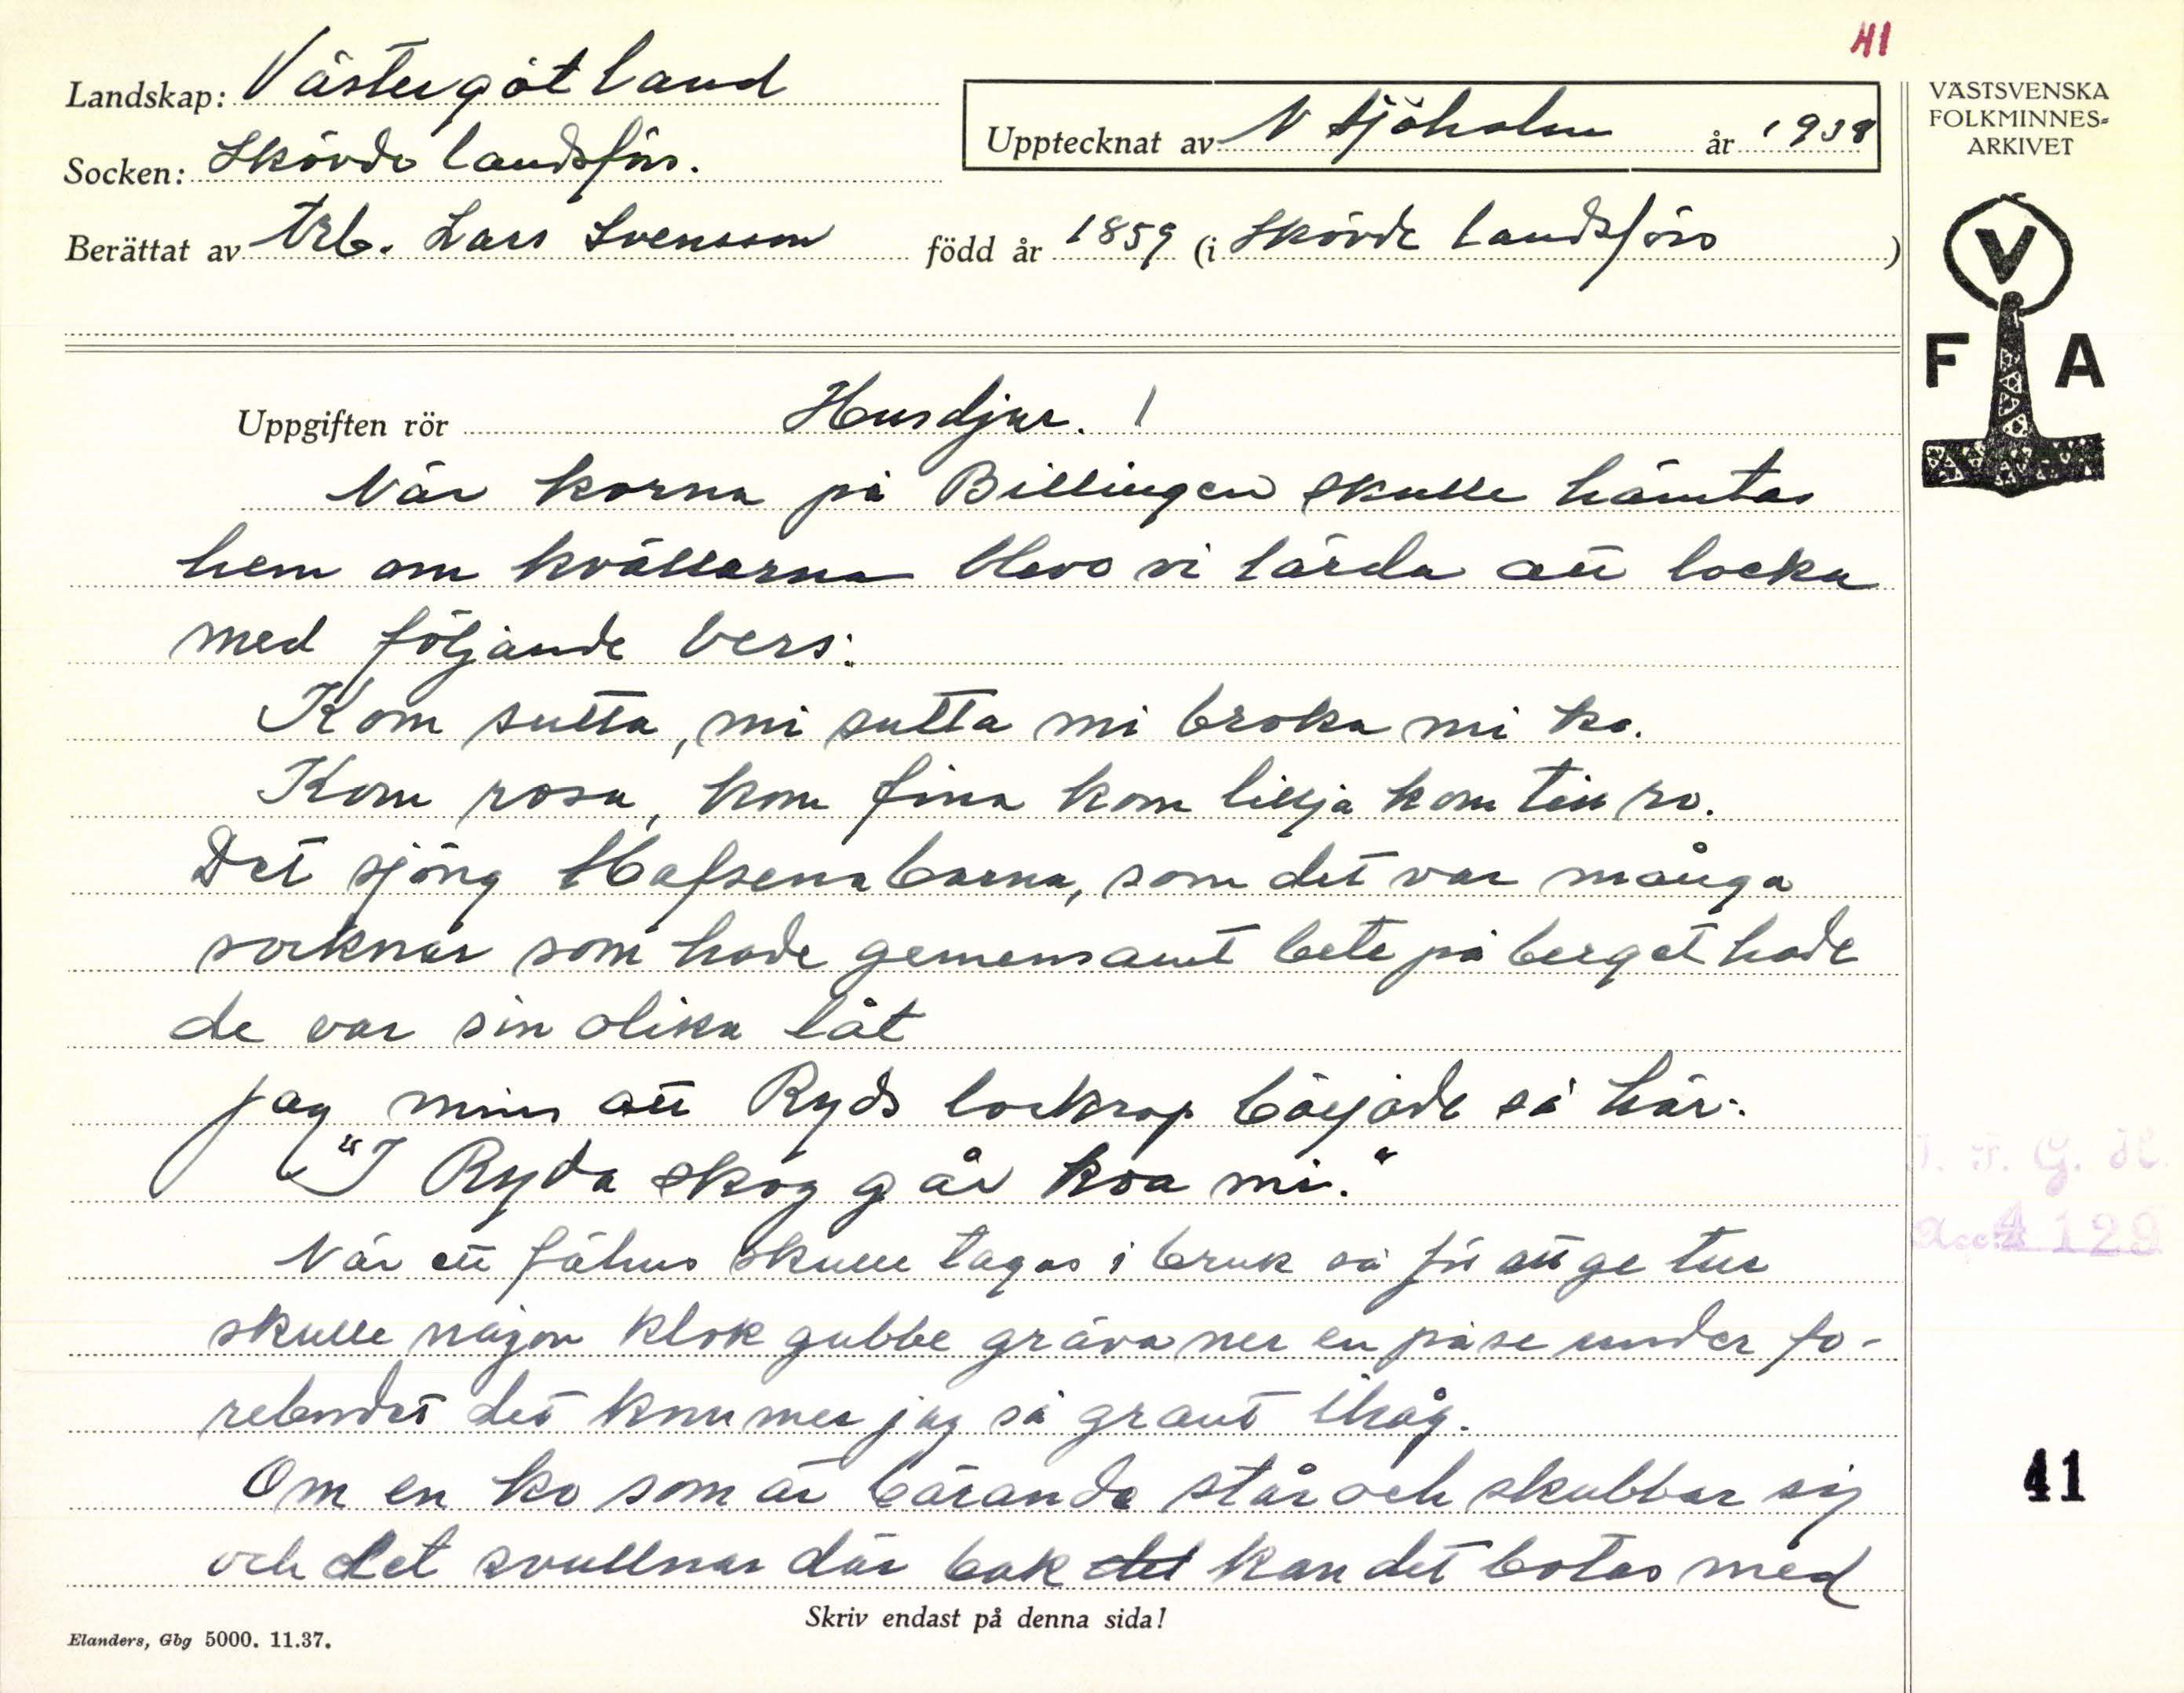 41
Landskap: Västergötland
Socken: Skövde landsförs.
Upptecknat av N Sjöholm år 1938
Berättat av trb. Lars Svensson född år 1859 (i Skövde landsförs )
VÄSTSVENSKA
FOLKMINNES-
ARKIVET
V
F A
Uppgiften rör Husdjur. 1
När korna på Billingen skulle hämtas
hem om kvällarna blevo vi lärda att locka
med följande vers:
Kom sutta, mi sutta mi broka mi ko.
Kom rosa, kom fina kom lilja kom till ro.
Det sjöng barna, som det var många
socknar som hade gemensamt bete på berget hade
de var sin olika låt
jag mins att Ryds lockrop började så här:
"I Ryda skog går koa mi."
När ett fähus skulle tagas i bruk så för att ge tur
skulle någon klok gubbe gräva ner en påse under fo-
rebordet det kommer jag så grant ihåg.
Om en ko som är bärande står och skubbar sig
och det svullnar där bak det kan det botas med
I. F. G. H.
Acc. 4129
41
Skriv endast på denna sida!
Elanders, Gbg 5000. 11.37.